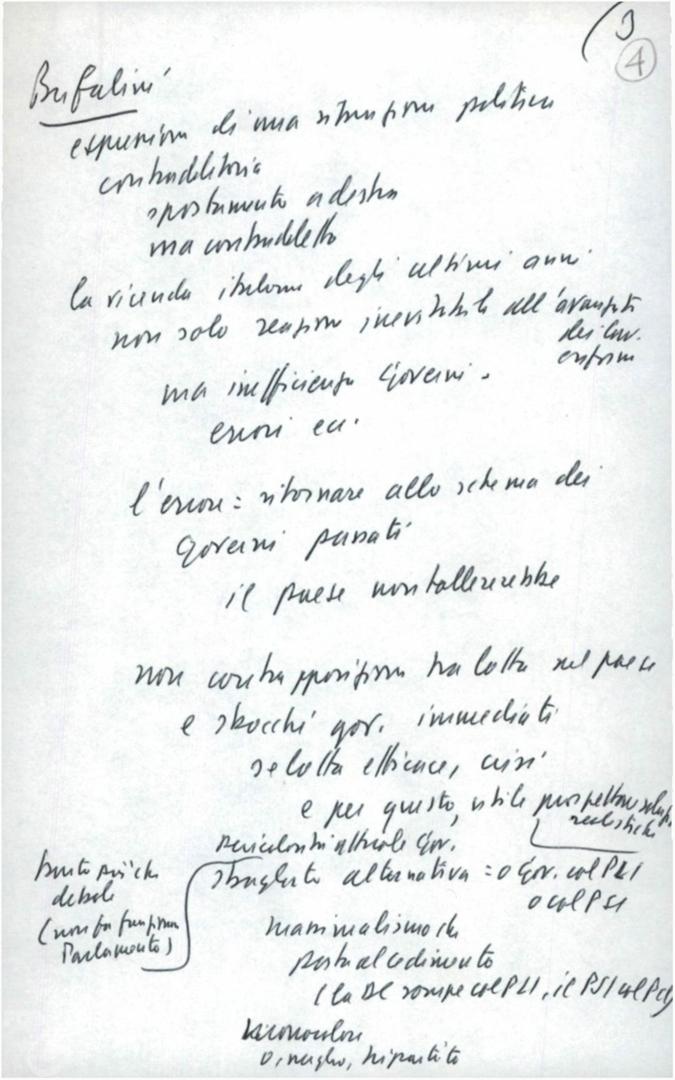 (3
4
Bufalini
espressione di una situazione politica
contraddittoria
spostamento a destra
ma contraddetto
la vicenda italiana degli ultimi anni
non solo reazioni inevitabili all'avanzata
dei lav.
ma inefficienza Governi.
errori ecc.
l'errore = ritornare allo schema dei
Governi passati
il paese non tollererebbe
non contrapposizione tra lotta nel paese
e sbocchi gov. immediati
se lotta efficace, crisi
e per questo, utile prospettare soluz.
realistiche
pericolosità attuale Gov.
tanto più che
debole
(non fa funzionare
Parlamento)
sbagliata alternativa = o Gov. col PLI
o col PSI
massimalismo che
porta al cedimento
(la DC rompe col PLI, il PSI col PCI)
Monocolore
o, meglio, tripartito